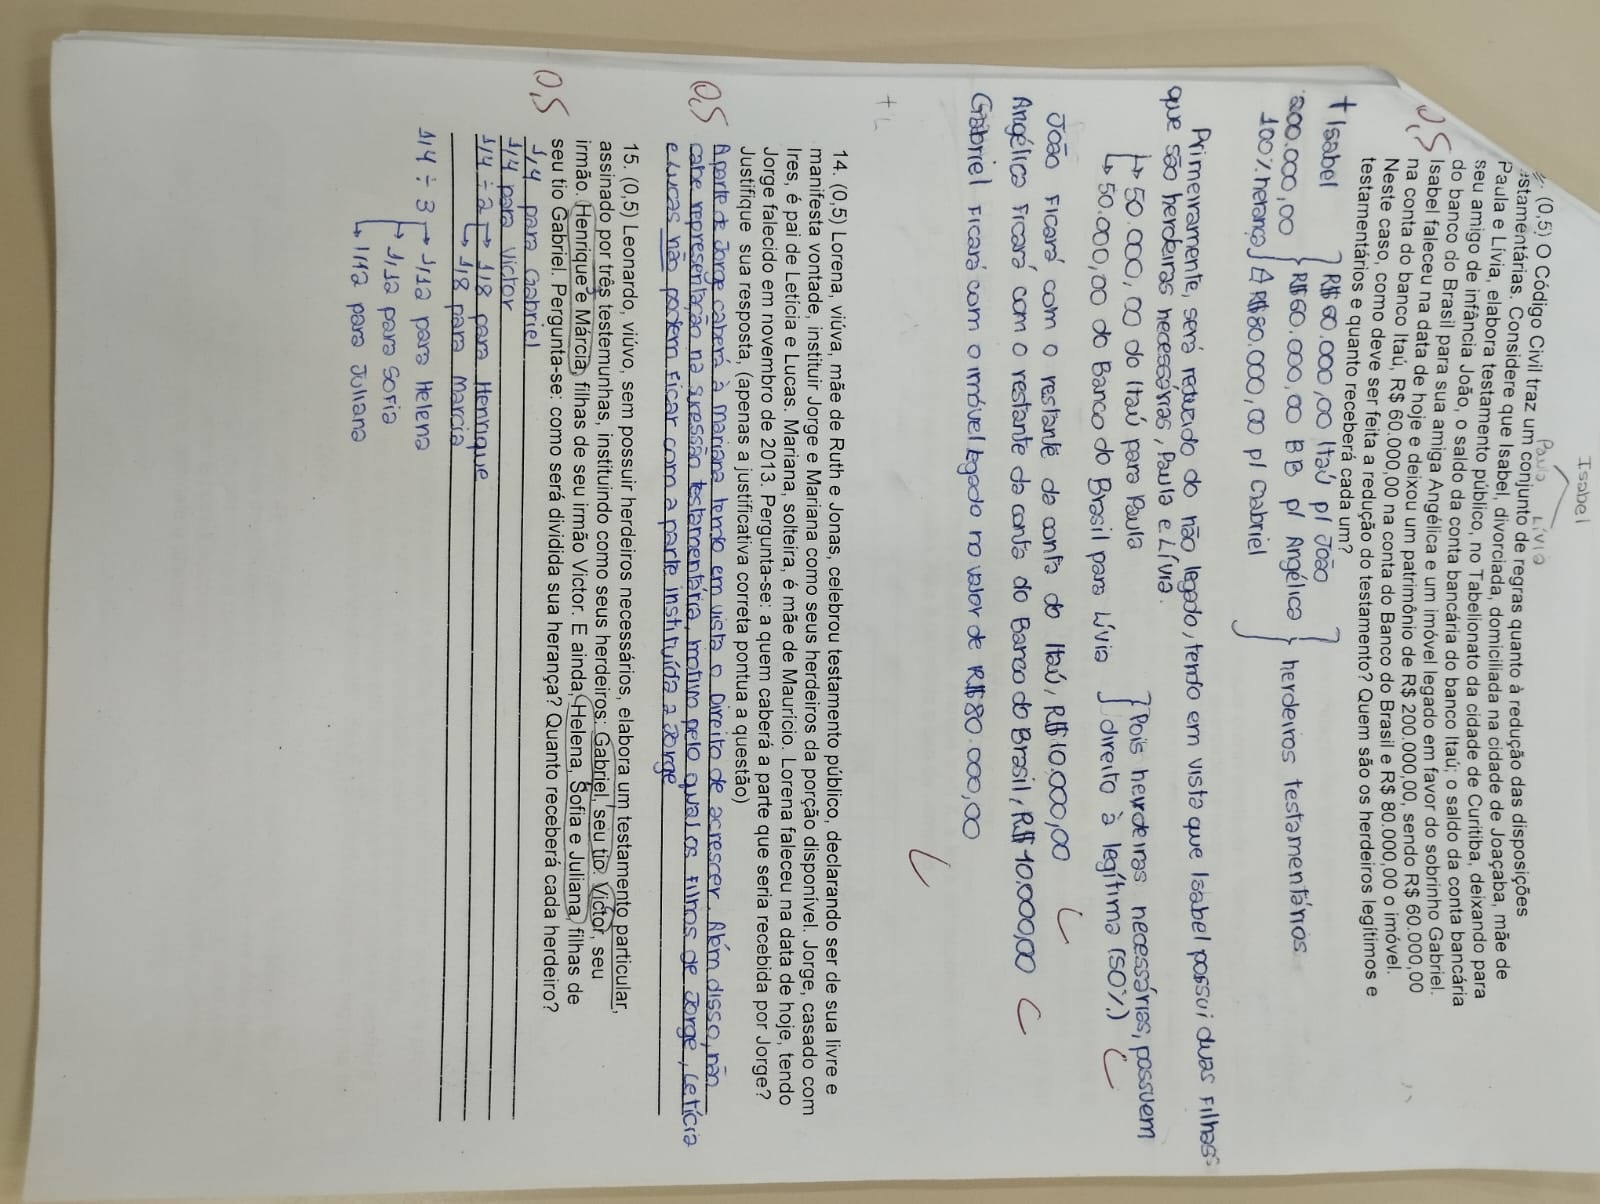 Isabel
Paula Lívia
(0,5) O Código Civil traz um conjunto de regras quanto à redução das disposições
testamentárias. Considere que Isabel, divorciada, domiciliada na cidade de Joaçaba, mãe de
Paula e Lívia, elabora testamento público, no Tabelionato da cidade de Curitiba, deixando para
seu amigo de infância João, o saldo da conta bancária do banco Itaú; o saldo da conta bancária
do banco do Brasil para sua amiga Angélica e um imóvel legado em favor do sobrinho Gabriel.
Isabel faleceu na data de hoje e deixou um patrimônio de R$ 200.000,00, sendo R$ 60.000,00
na conta do banco Itaú, R$ 60.000,00 na conta do Banco do Brasil e R$ 80.000,00 o imóvel.
Neste caso, como deve ser feita a redução do testamento? Quem são os herdeiros legítimos e
testamentários e quanto receberá cada um?
0,5
+ Isabel
200.000,00
100% herança
R$ 60.000,00 Itaú p/ João
R$ 60.000,00 BB p/ Angélica
R$ 80.000,00 p/ Gabriel
herdeiros testamentários
Primeiramente, será reduzido do não legado, tendo em vista que Isabel possui duas filhas
que são herdeiras necessárias, Paula e Lívia.
↳ 50.000,00 do Itaú para Paula
↳ 50.000,00 do Banco do Brasil para Lívia
Pois herdeiras necessárias, possuem
direito à legítima (50%)
João ficará com o restante da conta do Itaú, R$ 10.000,00
Angélica ficará com o restante da conta do Banco do Brasil, R$ 10.000,00
Gabriel ficará com o imóvel legado no valor de R$ 80.000,00
14. (0,5) Lorena, viúva, mãe de Ruth e Jonas, celebrou testamento público, declarando ser de sua livre e
manifesta vontade, instituir Jorge e Mariana como seus herdeiros da porção disponível. Jorge, casado com
Ires, é pai de Letícia e Lucas. Mariana, solteira, é mãe de Mauricio. Lorena faleceu na data de hoje, tendo
Jorge falecido em novembro de 2013. Pergunta-se: a quem caberá a parte que seria recebida por Jorge?
Justifique sua resposta, (apenas a justificativa correta pontua a questão)
0,5
A parte de Jorge caberá à Mariana tendo em vista o Direito de acrescer. Além disso, não
cabe representação na sucessão testamentária, motivo pelo qual os filhos de Jorge, Letícia
e Lucas não podem ficar com a parte instituída a Jorge
15. (0,5) Leonardo, viúvo, sem possuir herdeiros necessários, elabora um testamento particular,
assinado por três testemunhas, instituindo como seus herdeiros: Gabriel, seu tio. Victor, seu
irmão. Henrique e Márcia, filhas de seu irmão Victor. E ainda, Helena, Sofia e Juliana, filhas de
seu tio Gabriel. Pergunta-se: como será dividida sua herança? Quanto receberá cada herdeiro?
0,5
1/4 para Gabriel
1/4 para Victor
1/4 ÷ 2 → 1/8 para Henrique
↳ 1/8 para Marcia
1/4 ÷ 3 → 1/12 para Helena
↳ 1/12 para Sofia
↳ 1/12 para Juliana